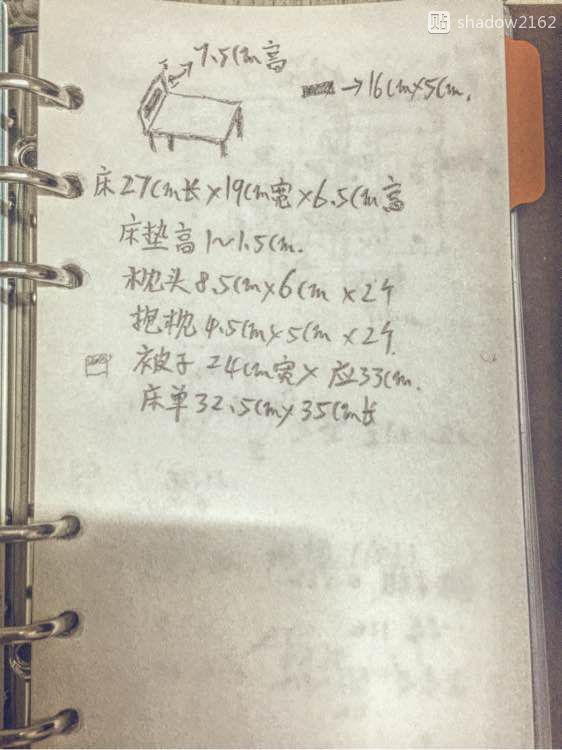 贴 shadow2162
7.5cm高
→16cm×5cm.
床27cm长×19cm宽×6.5cm高
床垫高1~1.5cm.
枕头8.5cm×6cm ×2个
抱枕4.5cm×5cm ×2个.
被子 24cm宽× 应33cm.
床单32.5cm×35cm长